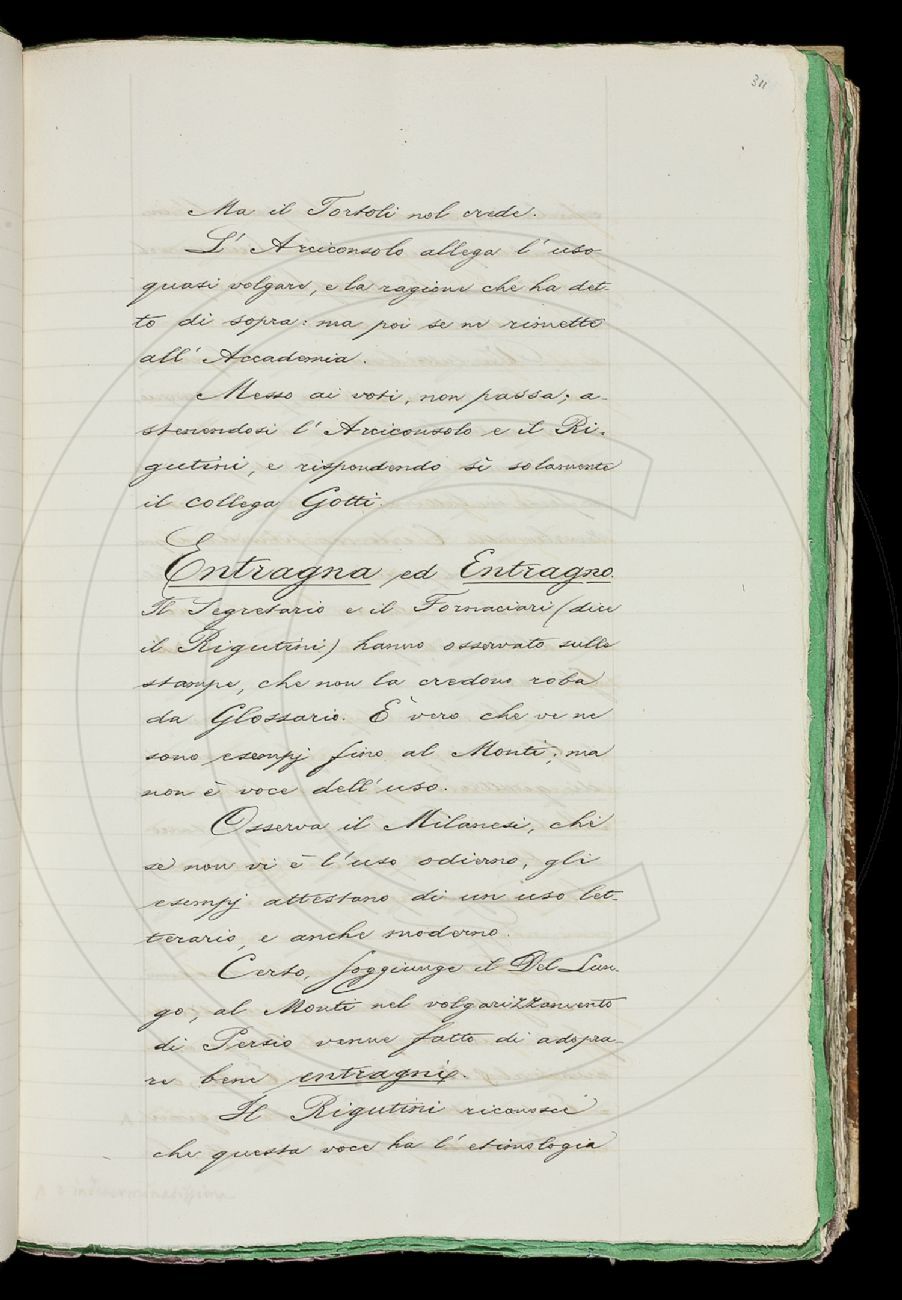 311
Ma il Tortoli nol crede.
L' Arciconsolo allega l' uso
quasi volgare, e la ragione che ha det-
to di sopra: ma poi se ne rimette
all' Accademia.
Messo ai voti, non passa; a-
stenendosi l' Arciconsolo e il Ri-
gutini, e rispondendo sì solamente
il collega Gotti.
Entragna ed Entragno.
Il Segretario e il Fornaciari (dice
il Rigutini) hanno osservato sulle
stampe, che non la credono roba
da Glossario. È vero che ve ne
sono esempj fino al Monti; ma
non è voce dell' uso.
Osserva il Milanesi, che
se non vi è l' uso odierno, gli
esempj attestano di un uso let-
terario, e anche moderno.
Certo, soggiunge il Del Lun-
go, al Monti nel volgarizzamento
di Persio venne fatto di adopra-
re bene entragni.
Il Rigutini riconosce
che questa voce ha l' etimologia